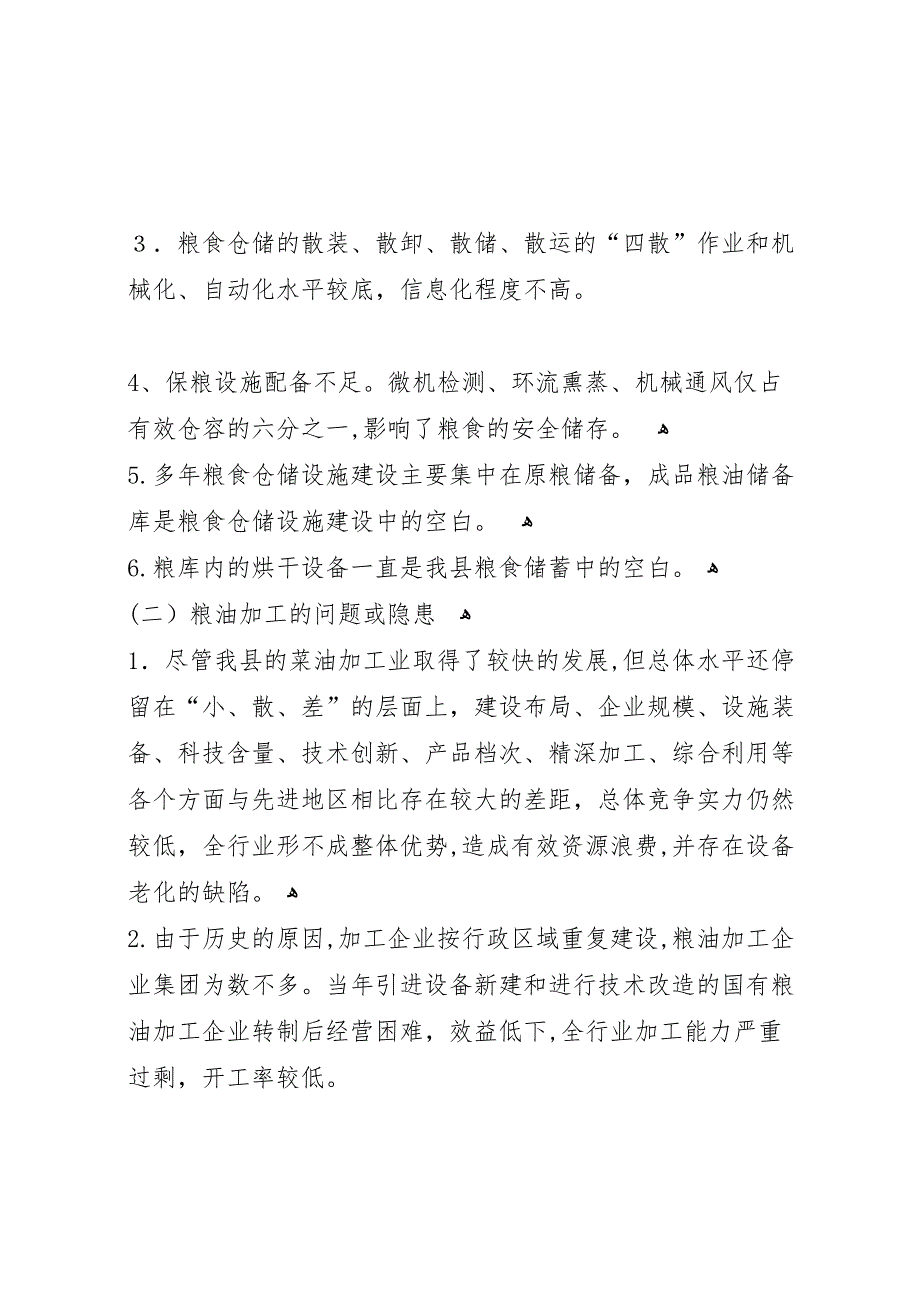 ３．粮食仓储的散装、散卸、散储、散运的“四散”作业和机
械化、自动化水平较底，信息化程度不高。
4、保粮设施配备不足。微机检测、环流熏蒸、机械通风仅占
有效仓容的六分之一,影响了粮食的安全储存。 ﻫ
5.多年粮食仓储设施建设主要集中在原粮储备，成品粮油储备
库是粮食仓储设施建设中的空白。 ﻫ
6.粮库内的烘干设备一直是我县粮食储蓄中的空白。ﻫ
(二）粮油加工的问题或隐患 ﻫ
1．尽管我县的菜油加工业取得了较快的发展,但总体水平还停
留在“小、散、差”的层面上，建设布局、企业规模、设施装
备、科技含量、技术创新、产品档次、精深加工、综合利用等
各个方面与先进地区相比存在较大的差距，总体竞争实力仍然
较低，全行业形不成整体优势,造成有效资源浪费,并存在设备
老化的缺陷。ﻫ
2.由于历史的原因,加工企业按行政区域重复建设,粮油加工企
业集团为数不多。当年引进设备新建和进行技术改造的国有粮
油加工企业转制后经营困难，效益低下,全行业加工能力严重
过剩，开工率较低。